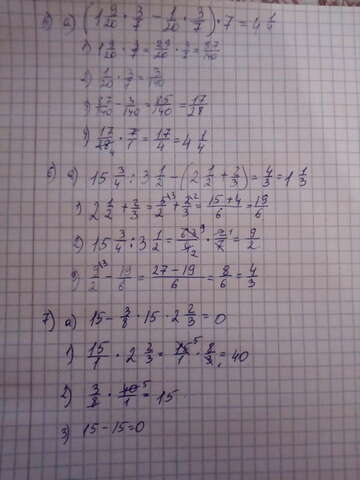 в) а) (1 9/20 · 3/7 − 1/20 · 3/7) · 7 = 4 1/4
1) 1 9/20 · 3/7 = 29/20 · 3/7 = 87/140
2) 1/20 · 3/7 = 3/140
3) 87/140 − 3/140 = 85/140 = 17/28
4) 17/28 4 · 7/1 = 17/4 = 4 1/4
б) а) 15 3/4 : 3 1/2 − (2 1/2 + 2/3) = 4/3 = 1 1/3
1) 2 1/2 + 2/3 = 5/2 \3 + 2/3 \2 = 15 + 4/6 = 19/6
2) 15 3/4 : 3 1/2 = 63 9/4 2 · 2 1/7 = 9/2
3) 9/2 \3 − 19/6 = 27 − 19/6 = 8/6 = 4/3
7) а) 15 − 3/8 · 15 · 2 2/3 = 0
1) 15/1 · 2 2/3 = 15 5/1 · 8/3 1 = 40
2) 3/8 · 40 5/1 = 15
3) 15 − 15 = 0